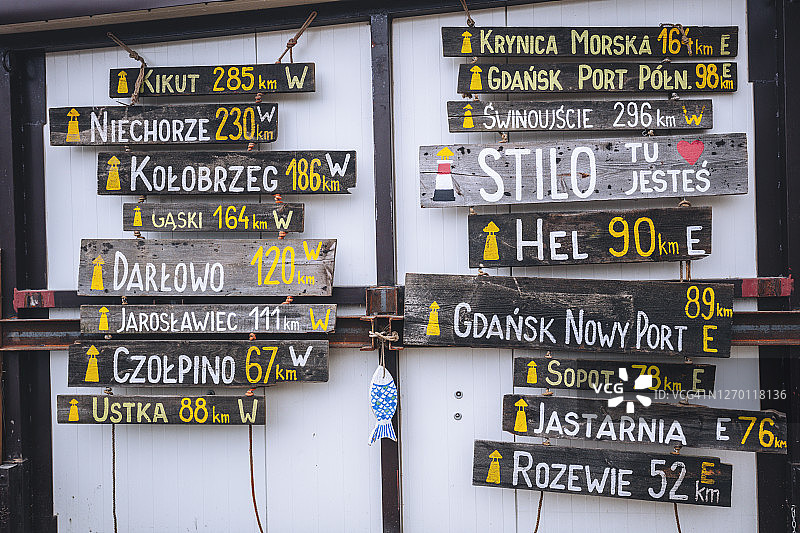 KIKUT 285 km W
NIECHORZE 230 km W
KOŁOBRZEG 186 km W
GĄSKI 164 km W
DARŁOWO 120 km W
JAROSŁAWIEC 111 km W
CZOŁPINO 67 km W
USTKA 88 km W
KRYNICA MORSKA 164 km E
GDAŃSK PORT PÓŁN. 98 km E
ŚWINOUJŚCIE 296 km W
STILO TU JESTEŚ
HEL 90 km E
GDAŃSK NOWY PORT 89 km E
SOPOT 78 km E
JASTARNIA E 76 km
ROZEWIE 52 km E
VCG
VCG211270118136
gettyimages